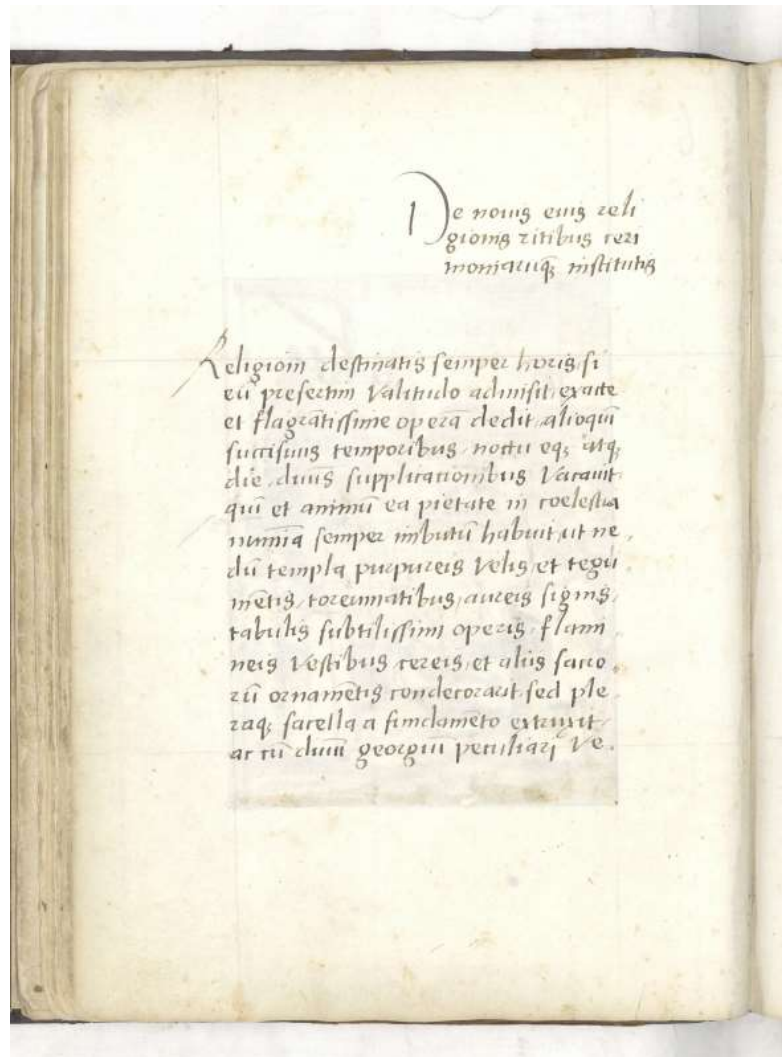 De nouis eius reli
gionis ritibus ceri
moniarūq; institutis
Religioni destinatis semper horis, si
eū presertim Valitudo admisit, exacte
et flagrātissime operā dedit, alioquī
succisiuis temporibus, noctu eq; atq;
die, diuis supplicationibus Vacauit
quī et animū ea pietate in coelestia
numina semper imbutū habuit, ut ne
dū templa purpureis Velis, et tegu
mētis, toreumatibus, aureis signis,
tabulis subtilissimi operis, flami
neis Vestibus cereis, et aliis sacro
rū ornamētis condecorarit, sed ple
raq; sacella a fundamēto extruxit
ac cū diuū georgiū peculiari Ve